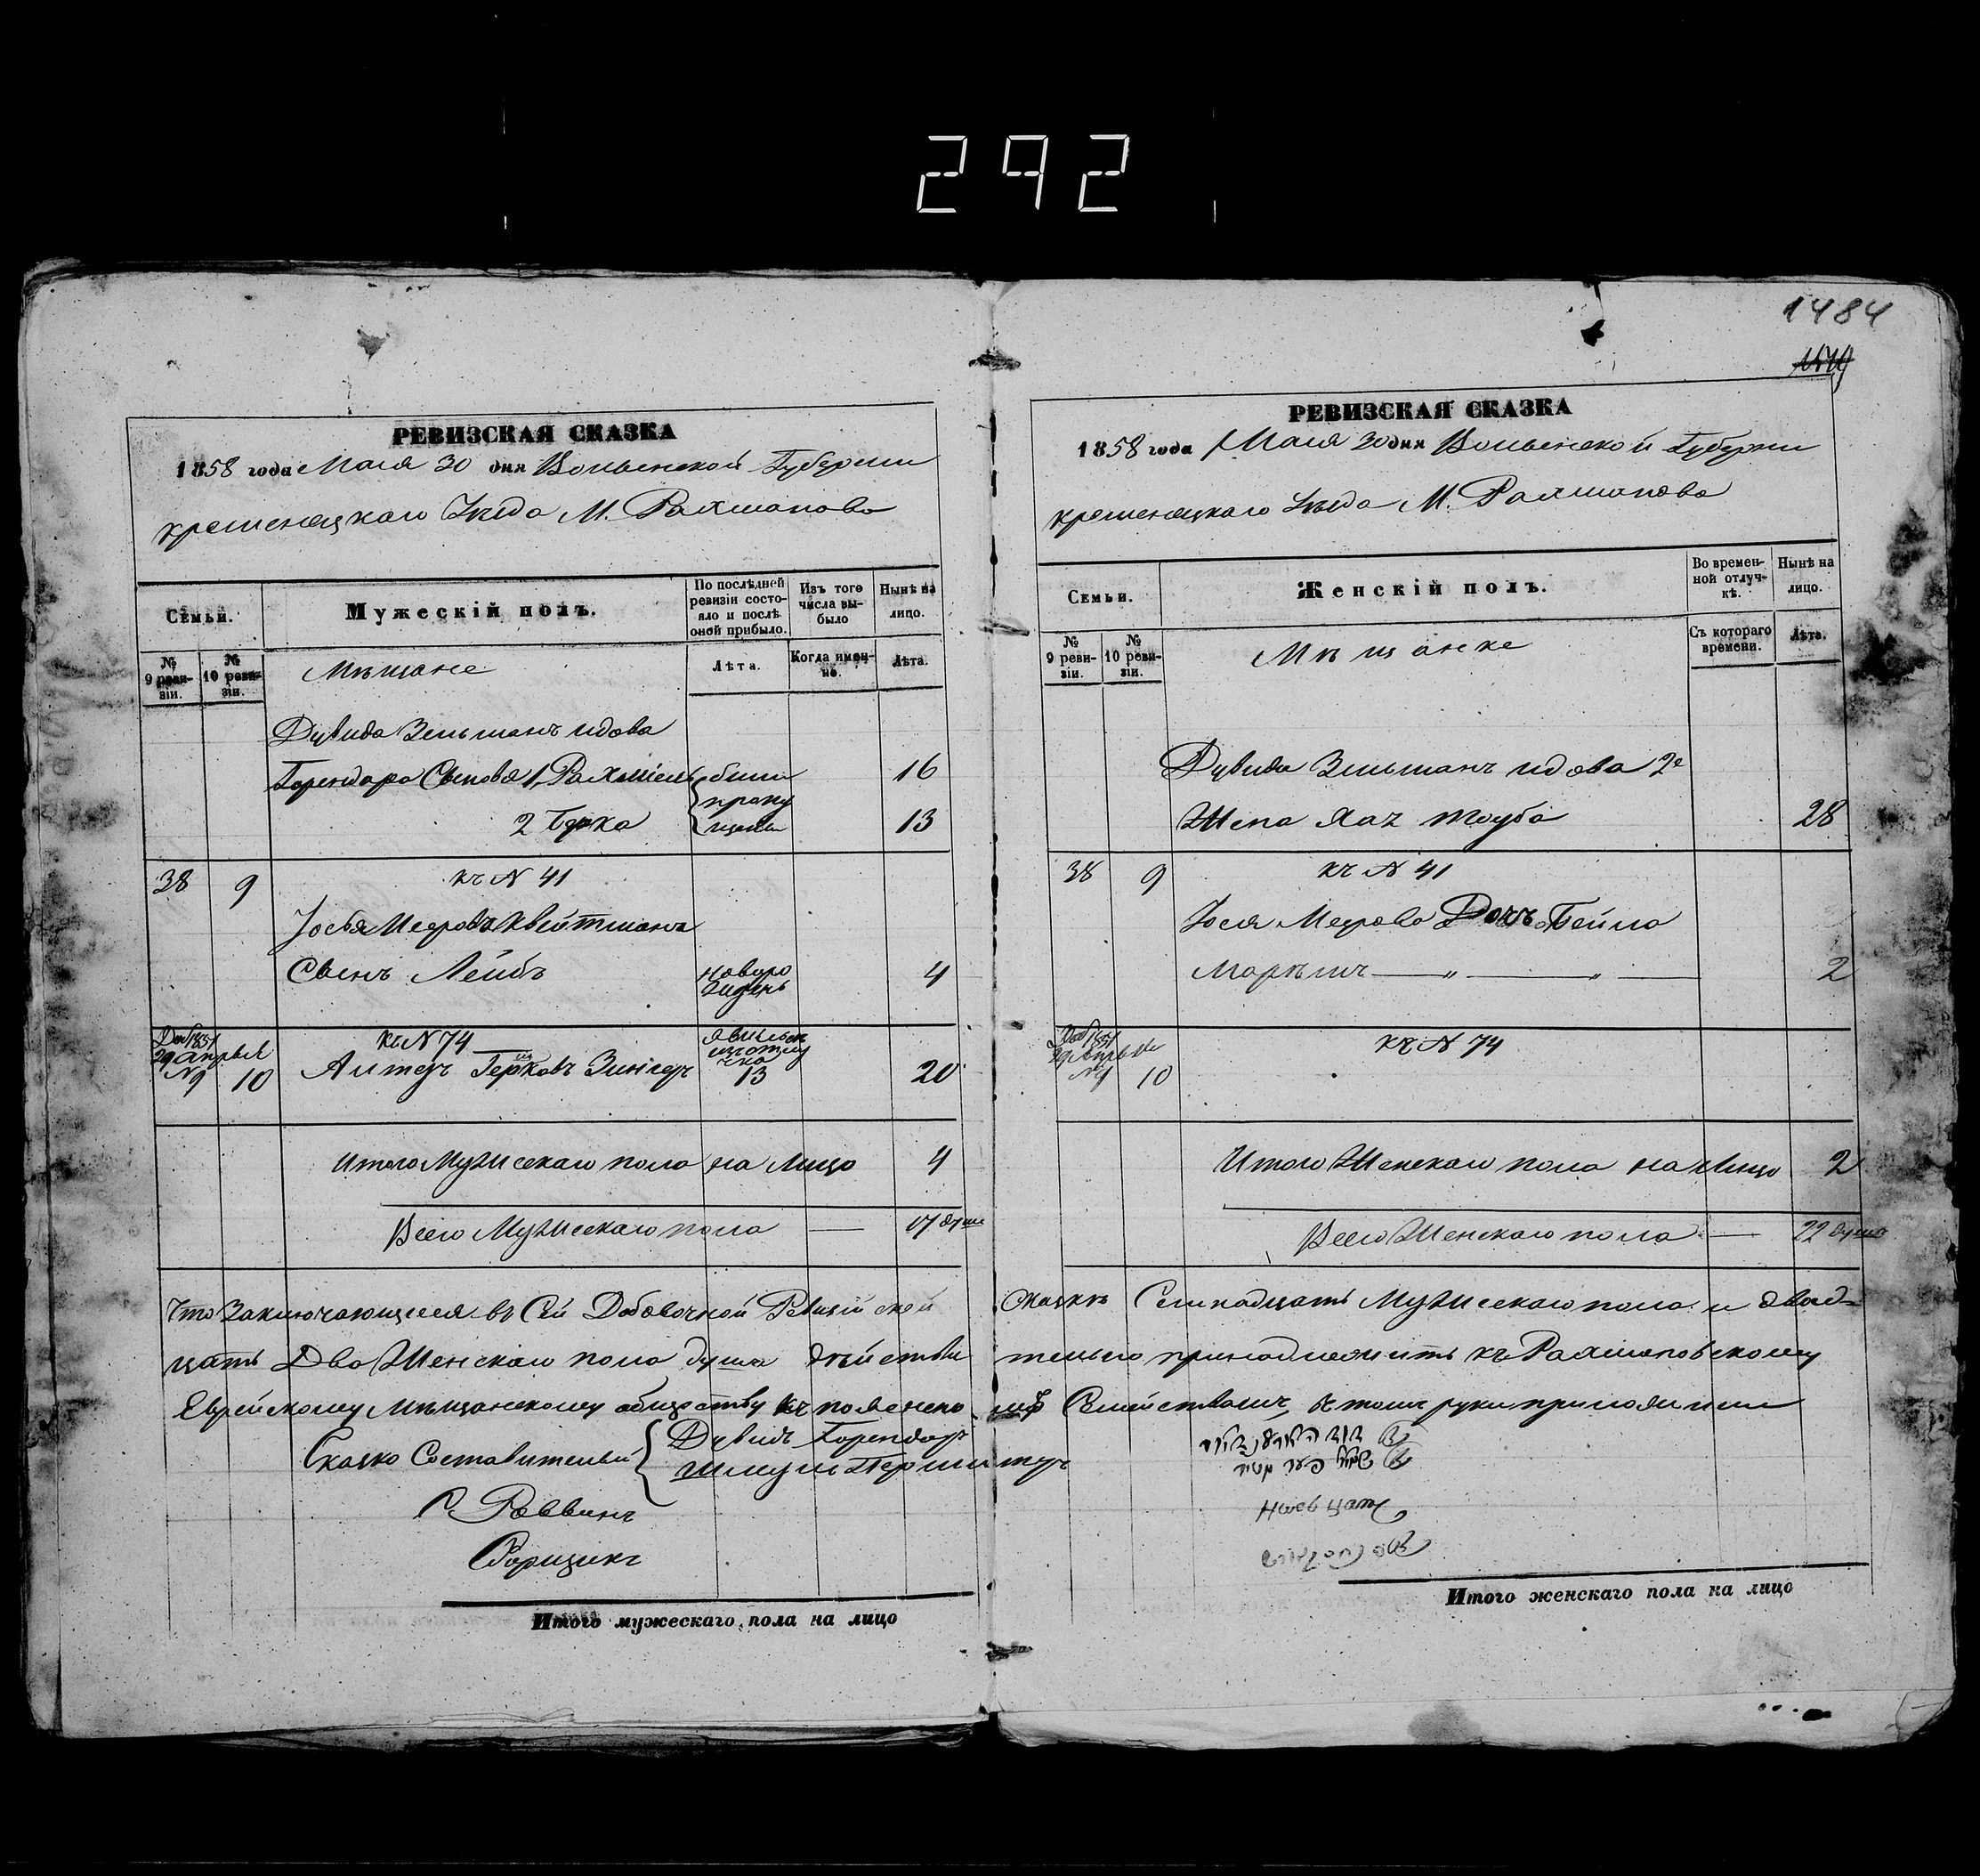 292
1484
РЕВИЗСКАЯ СКАЗКА
1858 года Мая 30 дня Волынской Губернии
Кременецкаго Уезда М. Рахманова
Семьи.
Мужескій полъ.
По послѣдней ревизіи состояло и послѣ оной прибыло.
Изъ того числа выбыло
Нынѣ на лицо.
№ 9 ревизіи.
№ 10 ревизіи.
Мѣщане
Лѣта.
Когда именно.
Лѣта.
Дувида Зельманъ Идова
Горендара Сыновья 1, Рахміель были 16
пропу
2 Берко щены 13
38 9 къ N 41
Іосья Меерова Квейтмана
Сынъ Лейбъ новоро жденъ 4
Доб 1851
29 Апреля
N 9 10
къ N 74
Алтеръ Герковъ Зингеръ
явился изъ отлучки
13
20
Итого Мужескаго пола на Лицо 4
Всего Мужескаго пола — 17 душ
РЕВИЗСКАЯ СКАЗКА
1858 года Мая 30 дня Волынской Губернии
Кременецкаго Уезда М. Рахманова
Семьи.
Женскій полъ.
Во временной отлучкѣ.
Нынѣ на лицо.
№ 9 ревизіи.
№ 10 ревизіи.
Мѣщанке
Съ котораго времени.
Лѣта.
Дувида Зельманъ Идова 2е
Жена Хая Тауба 28
38 9 къ N 41
Іося Меерова Дочь Бейла
Маріемъ — „ — „ — 2
Доб 1851
29 Апреля
N 9 10
къ N 74
Итого Женскаго пола на Лицо 2
Всего Женскаго пола — 22 души
Что Заключающееся въ Сей Добовочной Ревизійской Сказкѣ Семнадцать Мужескаго пола и двад-
цать Два Женскаго пола душъ дѣйстви тельно принадлежитъ къ Рахмановскому
Еврейскому Мѣщанскому обществу Семействамъ, въ томъ руки приложили
Сказко Составительи { Дувидъ Горендаръ
Шмуль Перльмутеръ
Раввинъ
Сборщикъ
Итого мужескаго пола на лицо
Итого женскаго пола на лицо